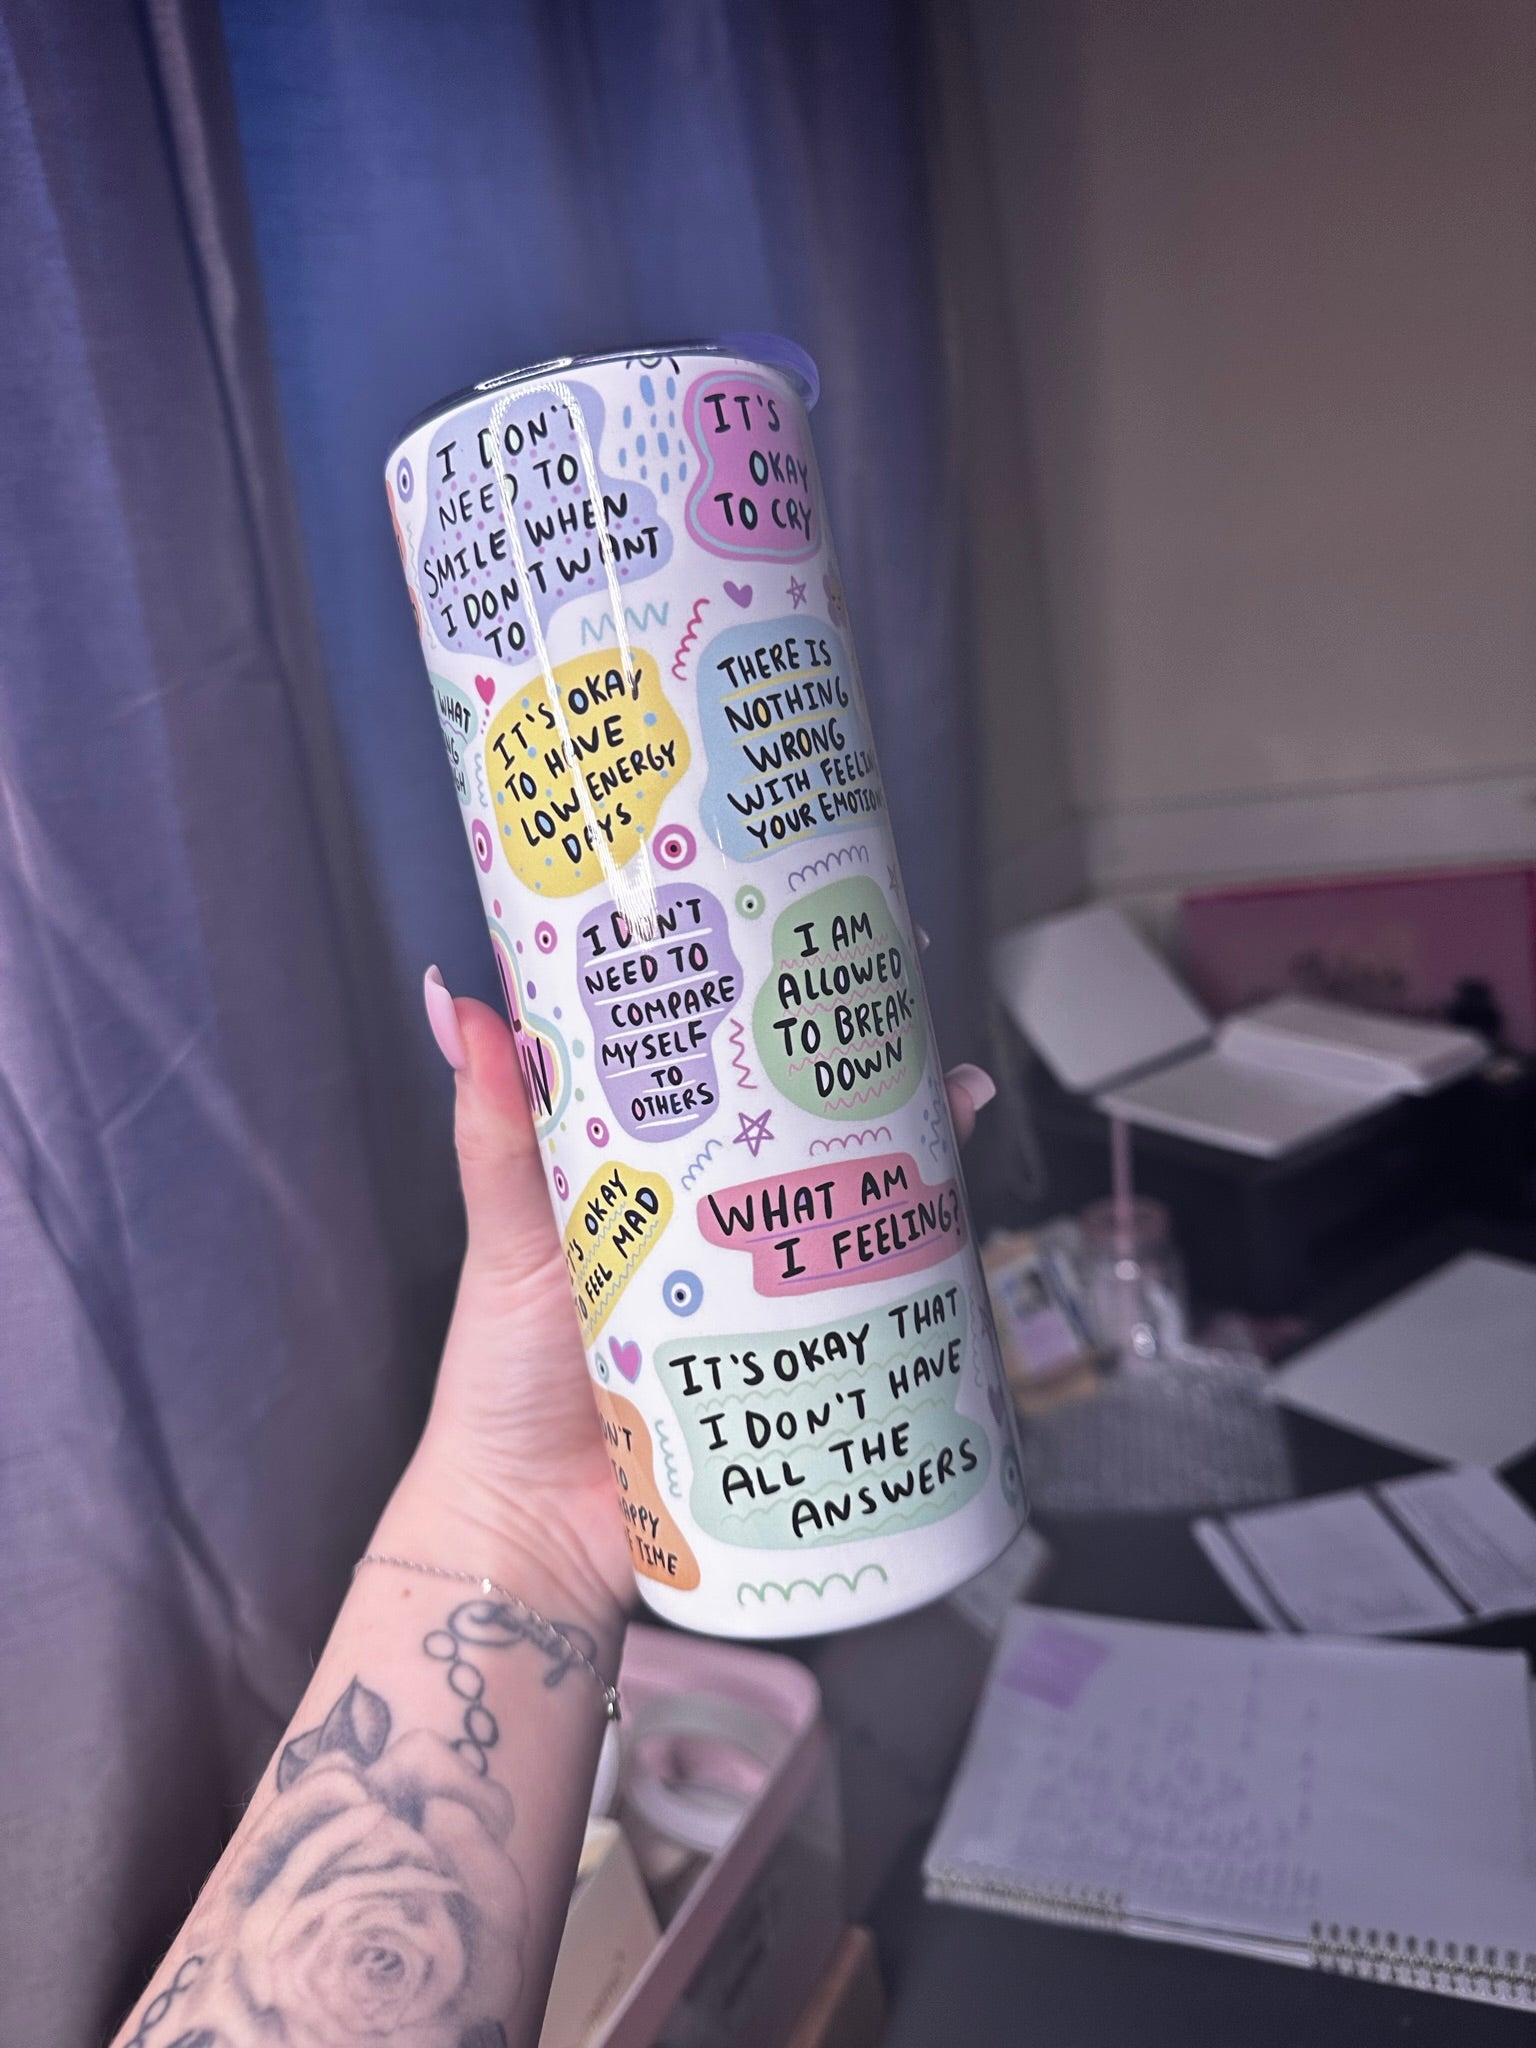 I DON'T
NEED TO
SMILE WHEN
I DON'T WANT
TO
IT'S
OKAY
TO CRY
WHAT
IT'S OKAY
TO HAVE
LOW ENERGY
DAYS
THERE IS
NOTHING
WRONG
WITH FEELIN
YOUR EMOTION
I DON'T
NEED TO
COMPARE
MYSELF
TO
OTHERS
I AM
ALLOWED
TO BREAK-
DOWN
IT'S OKAY
TO FEEL MAD
WHAT AM
I FEELING?
IT'S OKAY THAT
I DON'T HAVE
ALL THE
ANSWERS
ON'T
TO
APPY
TIME